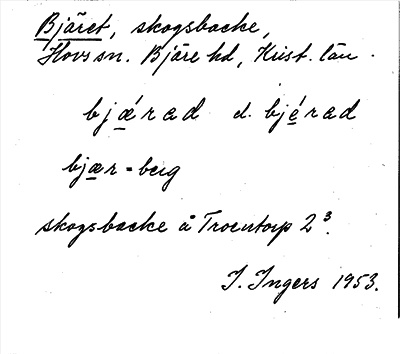 Bjäret, skogsbacke,
Hovs sn. Bjäre hd, Krist. län.
bjǽrad d. bjérad
bjær = berg
skogsbacke å Troentorp 2³.
I. Ingers 1953.